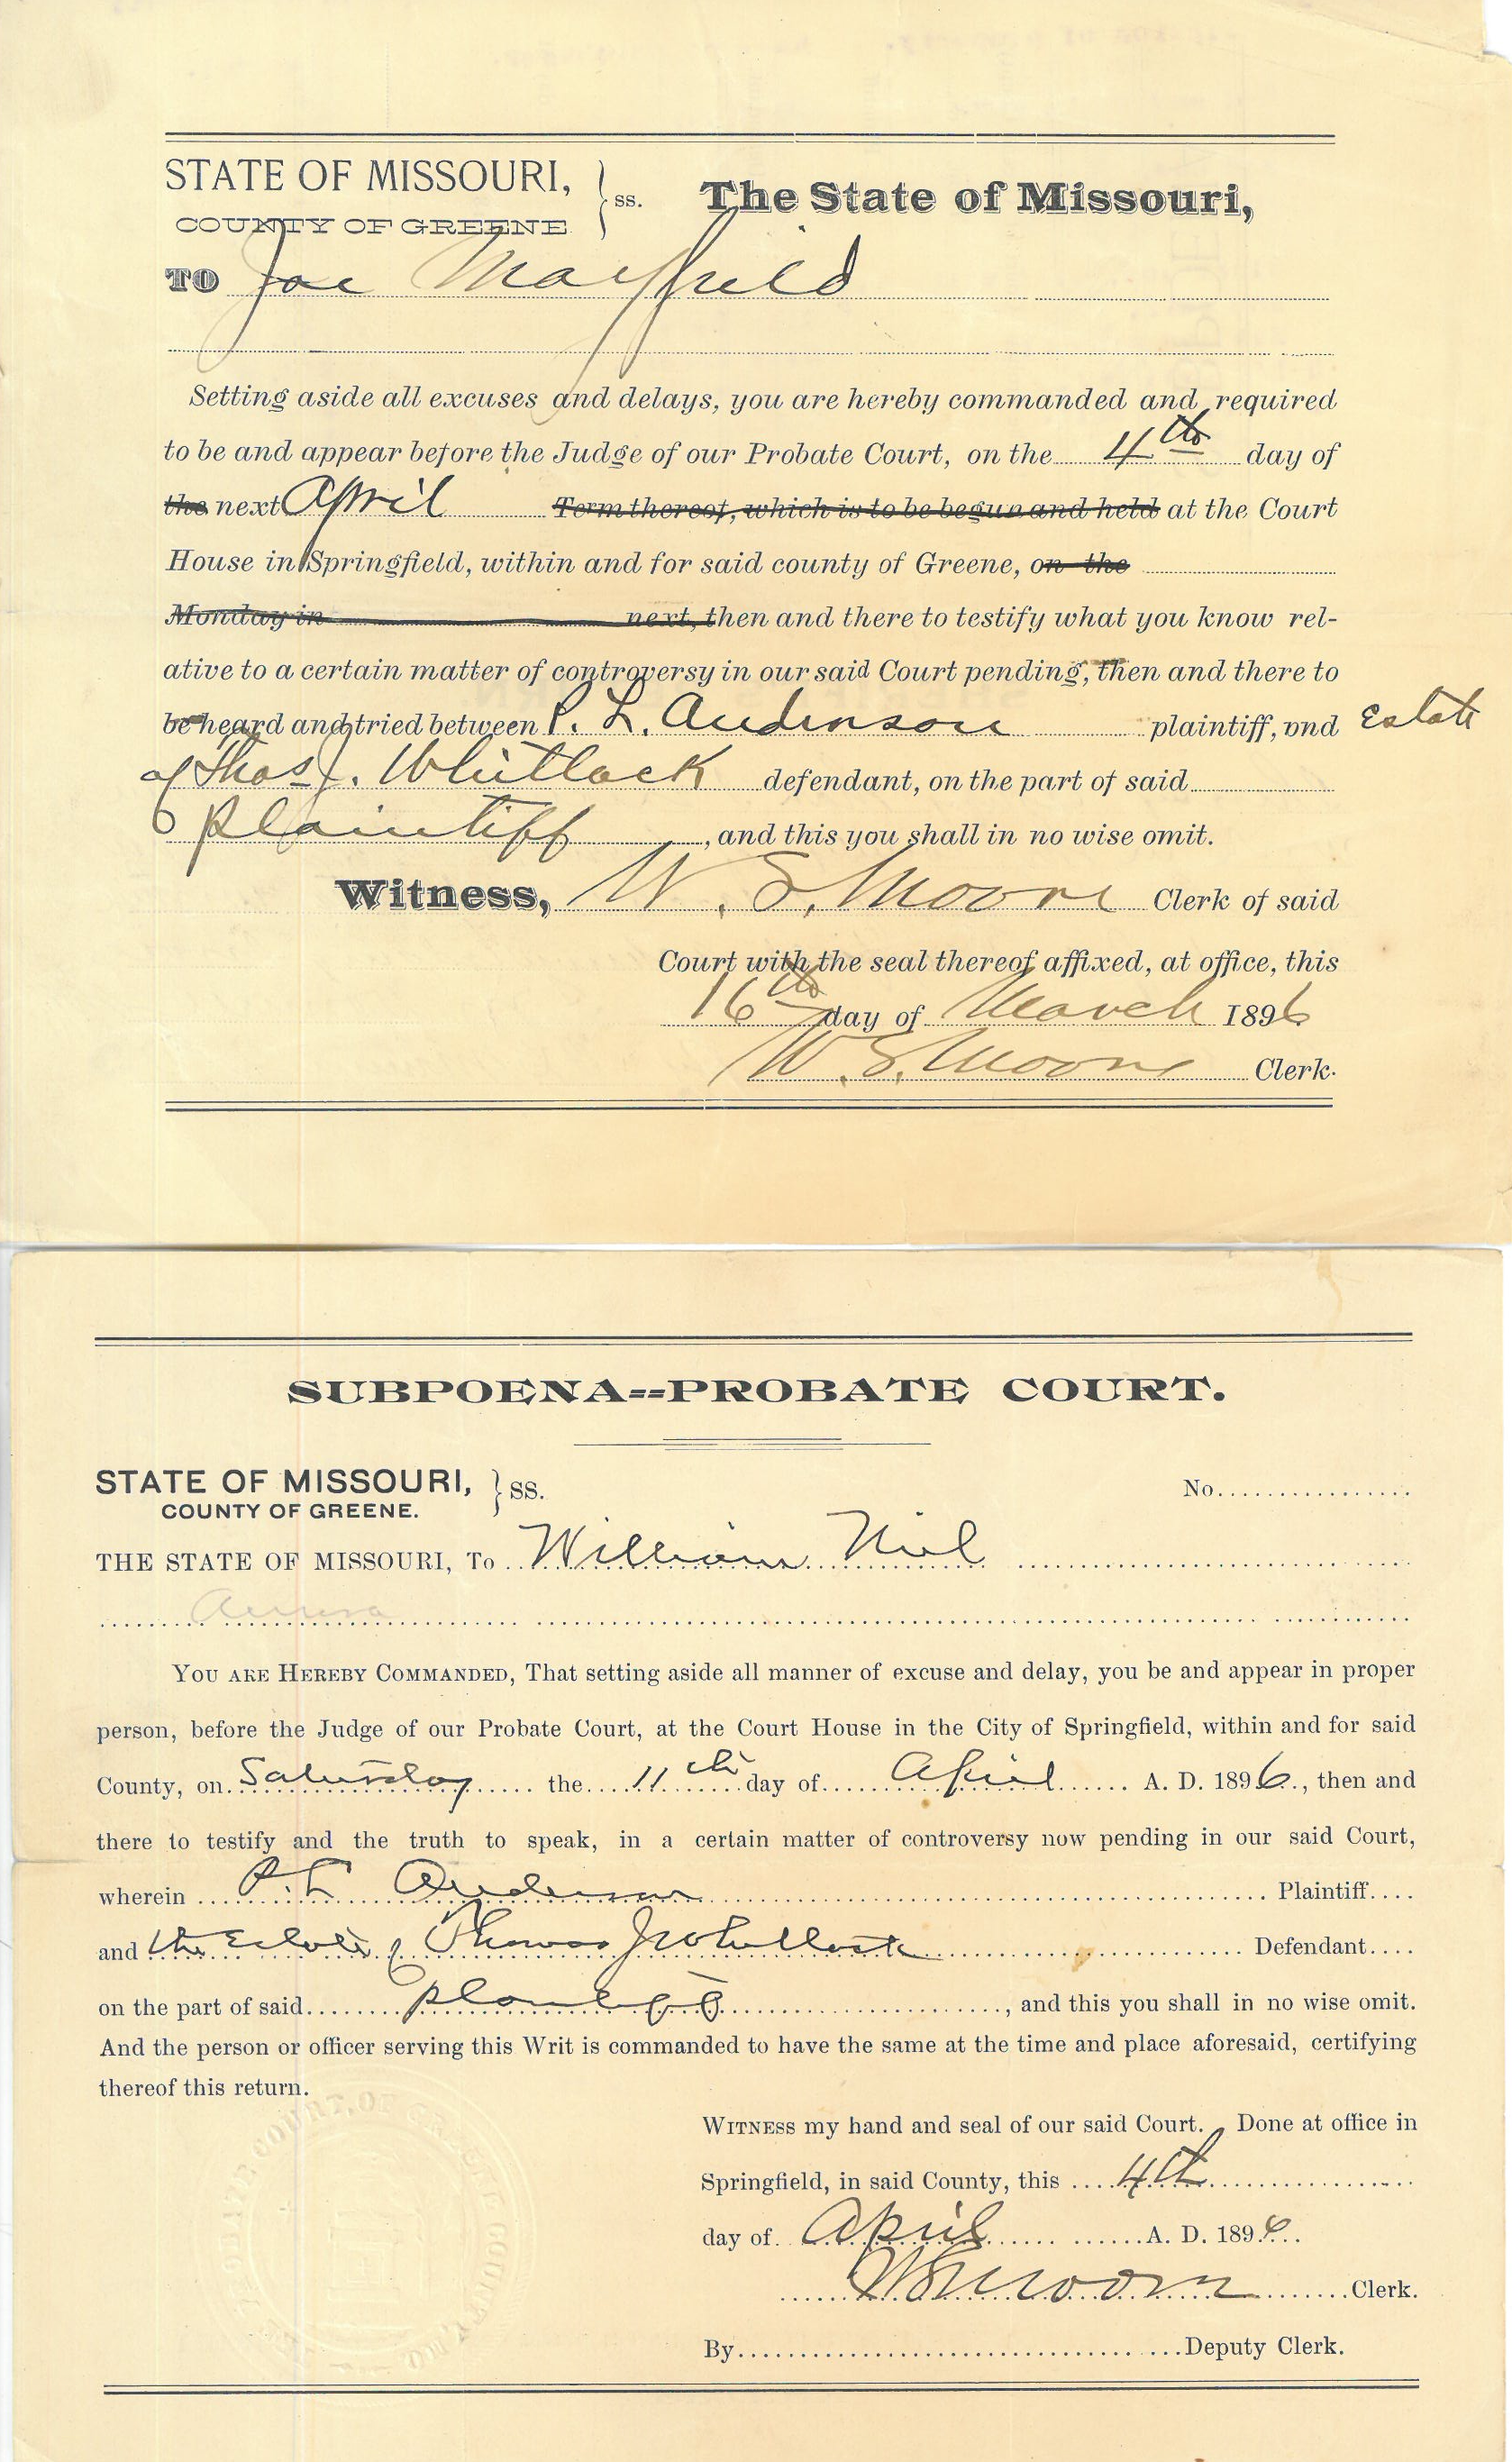 STATE OF MISSOURI, } ss. The State of Missouri,
COUNTY OF GREENE
TO Joe Mayfield
Setting aside all excuses and delays, you are hereby commanded and required
to be and appear before the Judge of our Probate Court, on the 4th day of
the next April Term thereof, which is to be begun and held at the Court
House in Springfield, within and for said county of Greene, on the
Monday in next, then and there to testify what you know rel-
ative to a certain matter of controversy in our said Court pending, then and there to
be heard and tried between P. L. Anderson plaintiff, vnd Estate
of Thos J. Whitlock defendant, on the part of said
Plaintiff, and this you shall in no wise omit.
Witness, W. S. Moore Clerk of said
Court with the seal thereof affixed, at office, this
16th day of March 1896
W. S. Moore Clerk.
SUBPOENA--PROBATE COURT.
STATE OF MISSOURI, } SS. No.
COUNTY OF GREENE.
THE STATE OF MISSOURI, To William
YOU ARE HEREBY COMMANDED, That setting aside all manner of excuse and delay, you be and appear in proper
person, before the Judge of our Probate Court, at the Court House in the City of Springfield, within and for said
County, on Saturday the 11th day of April A. D. 1896, then and
there to testify and the truth to speak, in a certain matter of controversy now pending in our said Court,
wherein P. L. Anderson Plaintiff
and the Estate of Thomas J Whitlock Defendant
on the part of said plaintiff, and this you shall in no wise omit.
And the person or officer serving this Writ is commanded to have the same at the time and place aforesaid, certifying
thereof this return.
WITNESS my hand and seal of our said Court. Done at office in
Springfield, in said County, this 4th
day of April A. D. 1896
W S Moore Clerk.
By Deputy Clerk.